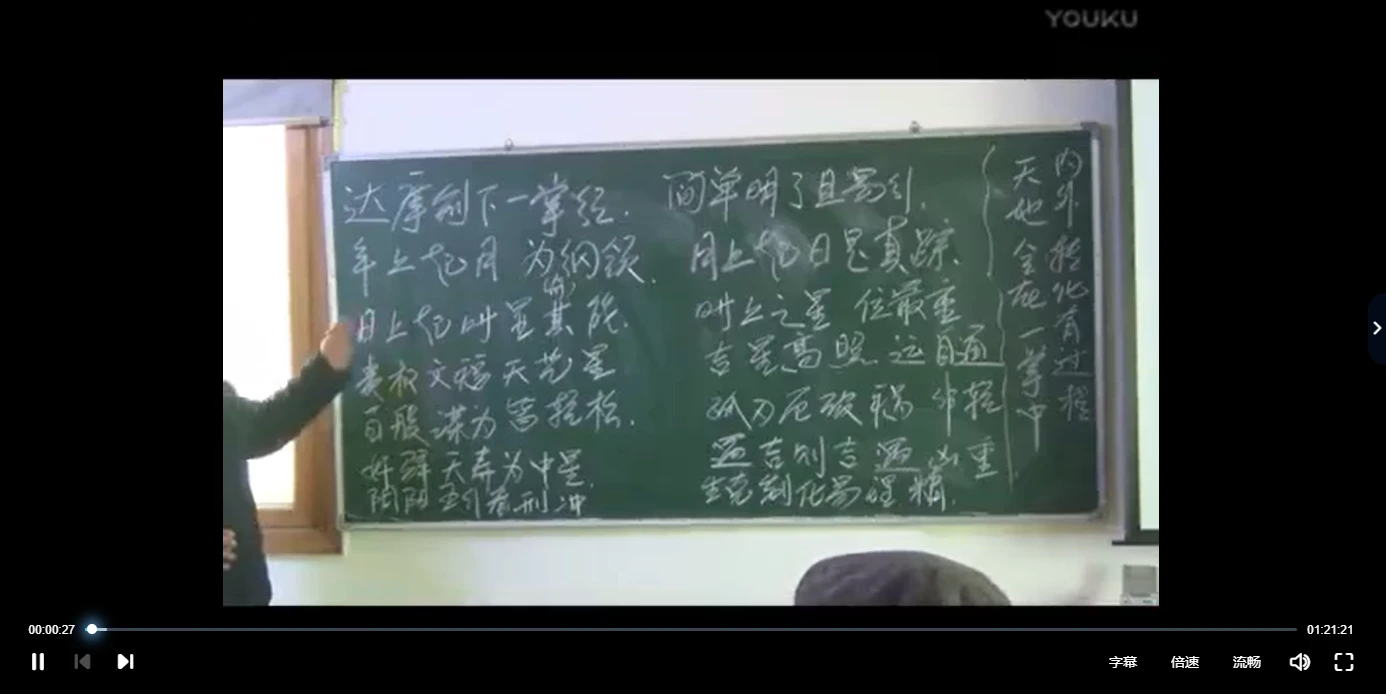 YOUKU
达摩创下一掌经. 简单明了且易引.
年上起月为纲领. 月上起日是真踪.
日上起时显其能. 时上之星位最重
贵权文福天艺星 吉星高照运自通
百般谋为皆轻松. 孤刃厄破祸非轻
奸驿天寿为中星. 遇吉则吉遇凶重
阴阳五行看刑冲 生克制化易理精.
内外转化有过程
天地全在一掌中
00:00:27
01:21:21
字幕 倍速 流畅